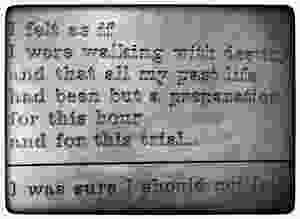 I felt as if
I were walking with destiny
and that all my past life
had been but a preparation
for this hour
and for this trial..
I was sure I should not fail